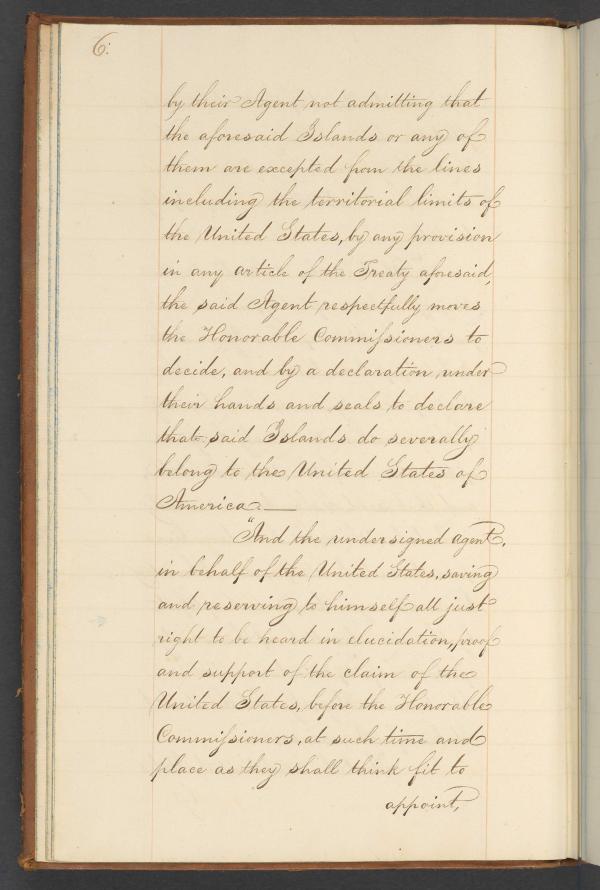 6:
by their Agent not admitting that
the aforesaid Islands or any of
them are excepted from the lines
including the territorial limits of
the United States, by any provision
in any article of the Treaty aforesaid,
the said Agent respectfully moves
the Honorable Commiſsioners to
decide, and by a declaration under
their hands and seals to declare
that said Islands do severally
belong to the United States of
America.—
"And the undersigned agent,
in behalf of the United States, saving
and reserving to himself all just
right to be heard in elucidation, proof
and support of the claim of the
United States, before the Honorable
Commiſsioners, at such time and
place as they shall think fit to
appoint,